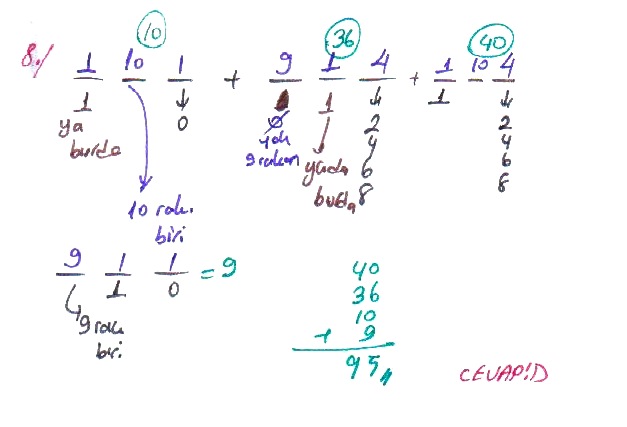 10 36 40
8./ 1 10 1 + 9 1 4 + 1 10 4
1 ↓ 1 ↓ 1 ↓
ya 0 0 2 2
burda yok 4 4
9 rakam yada 6 6
burda 8 8
10 rak.
biri
9 1 1 = 9
1 0
9 rak
biri
40
36
10
+ 9
95
CEVAP:D